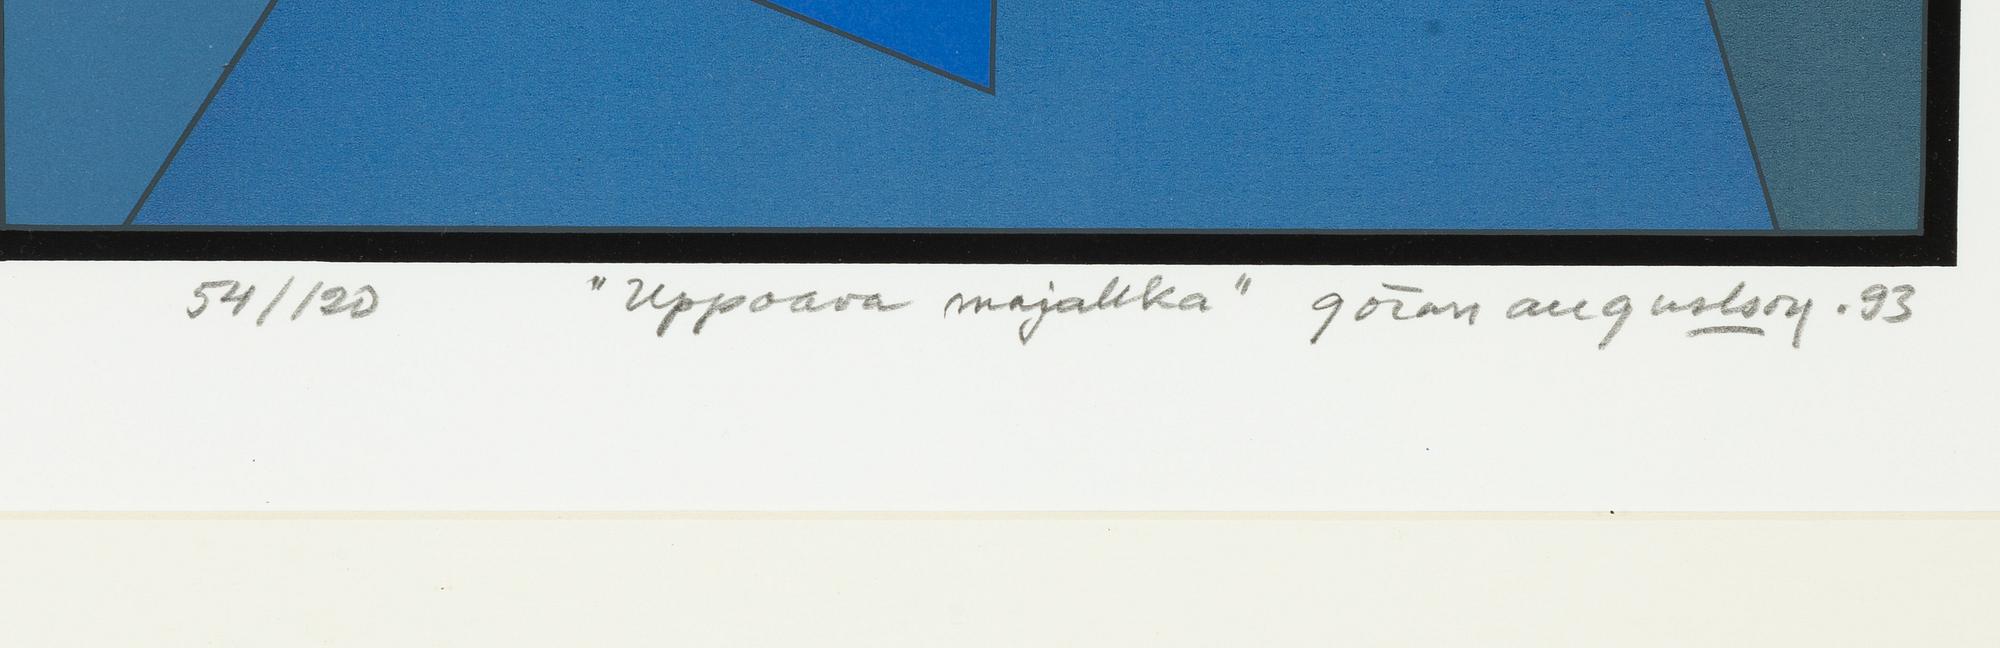 54/120 "Uppoava majakka" göran augustson . 93